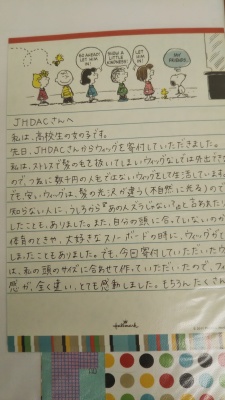 GO AHEAD! LET HIM IN!
SHOW A LITTLE KINDNESS!
LET HIM IN!
MY FRIENDS.
JHDACさんへ
私は、高校生の女の子です。
先日、JHDACさんからウィッグを寄付していただきました。
私は、ストレスで髪の毛を抜いてしまい、ウィッグなしでは外出できな
ので、つねに数千円の人毛ではないウィッグをして生活しています。
でも、安いウィッグは、髪の光沢が違う(不自然に光る)ので
知らない人に、うしろから"あの人ズラじゃない?"と言われたり
したこともありました。また、自分の頭に合っていないので
体育のときや、大好きなスノーボードの時に、ウィッグが
しまったこともありました。でも、今回寄付していただいたウ
は、私の頭のサイズに合わせて作っていただいたので、フィ
感が、全く違い、とても感動しました。もちろん、たくさん
Hallmark